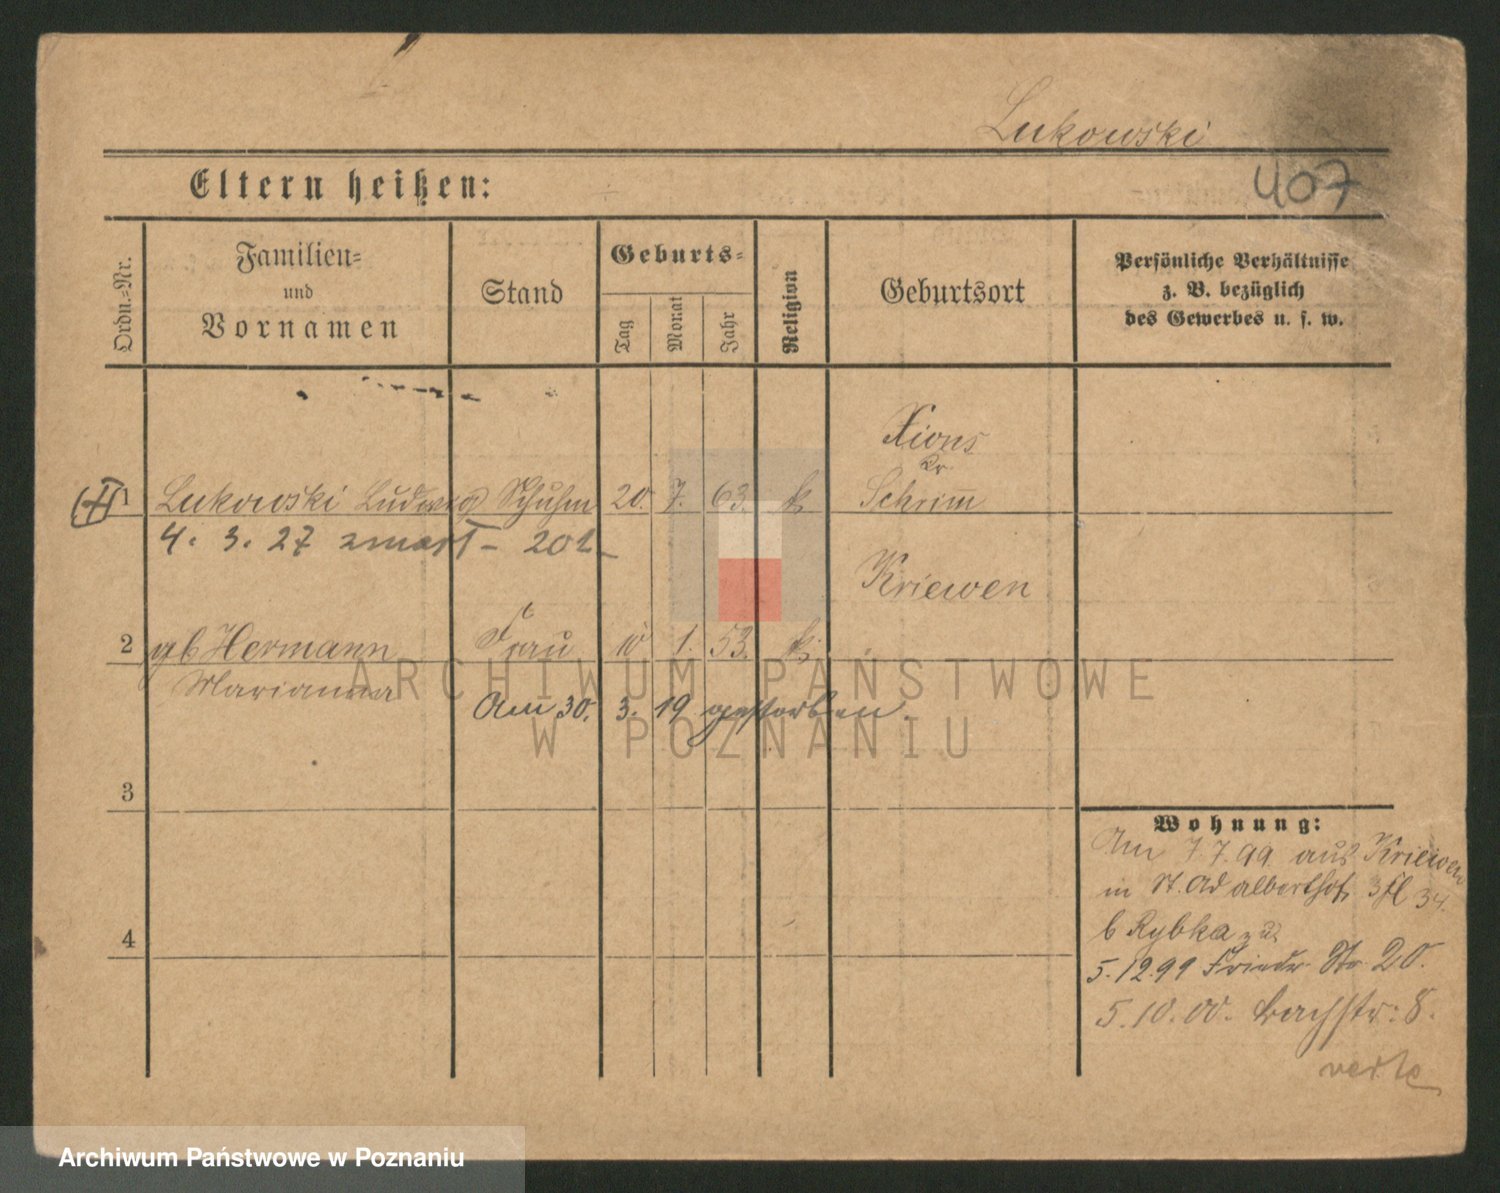 Lukowski
Eltern heißen:
407
Ordn.=Nr.
Familien=
und
Vornamen
Stand
Geburts=
Tag
Monat
Jahr
Religion
Geburtsort
Persönliche Verhältnisse
z. B. bezüglich
des Gewerbes u. s. w.
Xions
Kr.
1 Lukowski Ludwig Schuhm 20. 7. 63. k Schrim
4. 3. 27 zmarł - 201
Kriewen
2 gb Hermann Frau 10 1. 53. k.
Marianna
Am 30. 3. 19 gestorben.
ARCHIWUM PAŃSTWOWE
W POZNANIU
3
Wohnung:
Am 7.7.99. aus Kriewen
in St. Adalberthof. 34.
b Rybka
4
5.12.99 Friedr. Str. 20.
5.10.00. Bachstr: 8.
verte
Archiwum Państwowe w Poznaniu